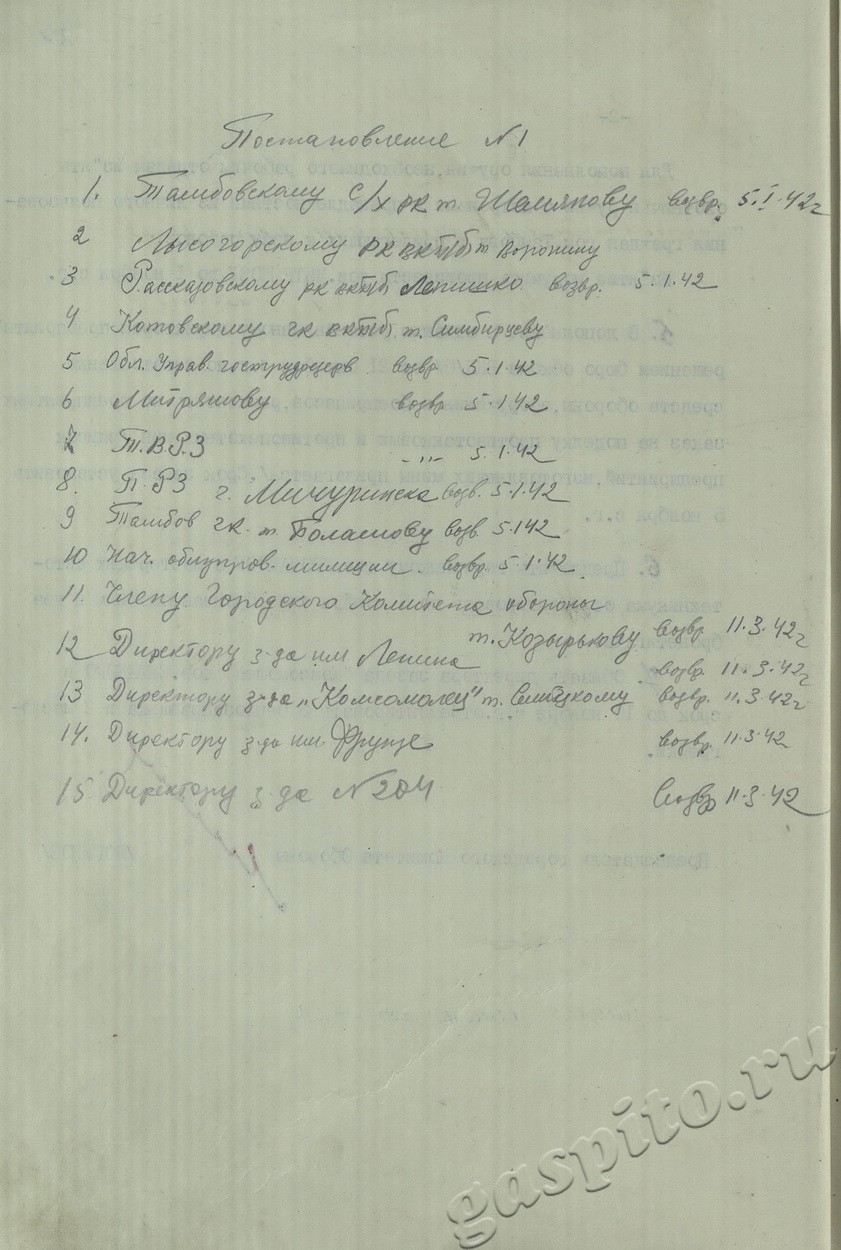 Постановление №1
1. Тамбовскому с/х рк т. Шемякову возвр. 5.I.42г
2 Лысогорскому рк вкпб т Воронину
3 Рассказовскому рк вкпб Лепишко возвр. 5.1.42
4 Котовскому гк вкпб т. Симбирцеву
5 Обл. Управ. гострудрезерв возвр 5.1.42
6 Митряшову возвр 5.1.42
7 Т.В.Р.З -„- 5.1.42
8. П.РЗ г. Мичуринска возв. 5.1.42
9 Тамбов гк. т. возв 5.1.42
10 Нач. облупров. милиции. возвр. 5.1.42
11. Члену Городского Комитета обороны
т. Козырькову возвр 11.3.42г
12 Директору з-да им Ленина возвр 11.3.42г
13 Директору з-да „Комсомолец" т. возвр. 11.3.42г
14. Директору з-да им. Фрунзе возвр. 11.3.42
15. Директору з-да №204 возвр 11.3.42
gaspito.ru